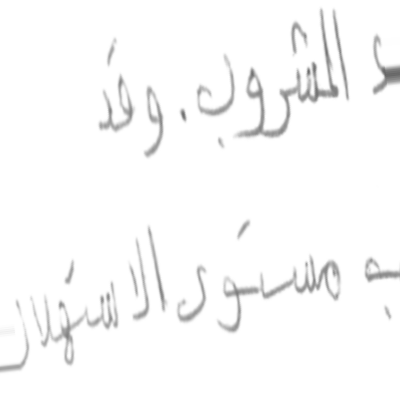 المشروب. وقد
مستوى الاستهلاك